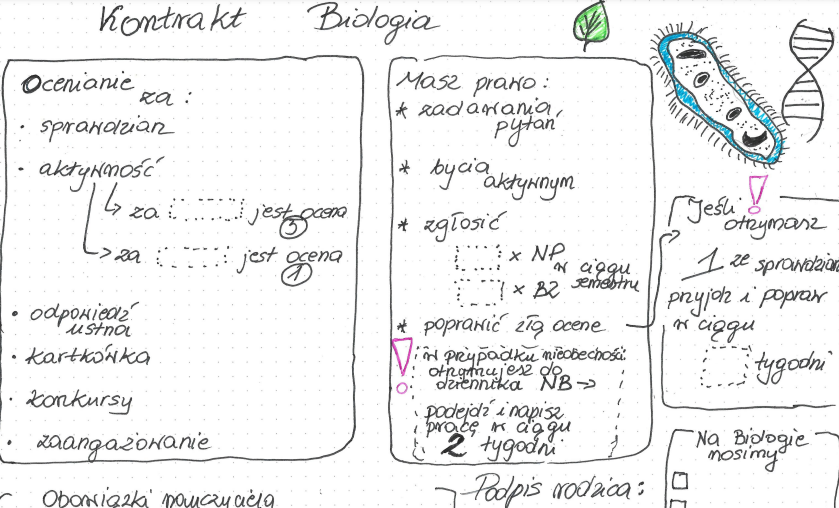 Kontrakt Biologia
Ocenianie
za:
· sprawdzian
· aktywność
za jest ocena
5
za jest ocena
1
· odpowiedź
ustna
· kartkówka
· konkursy
· zaangażowanie
Masz prawo:
* zadawania
pytań
* bycia
aktywnym
* zgłosić
x NP
w ciągu
x BZ semestru
* poprawić złą ocene
! w przypadku nieobecności
otrzymujesz do
dziennika NB →
podejdź i napisz
pracę w ciągu
2 tygodni
Jeśli !
otrzymasz
1 ze sprawdzian
przyjdź i popraw
w ciągu
tygodni
Na Biologie
nosimy
Obowiązki nauczyciela
Podpis rodzica: